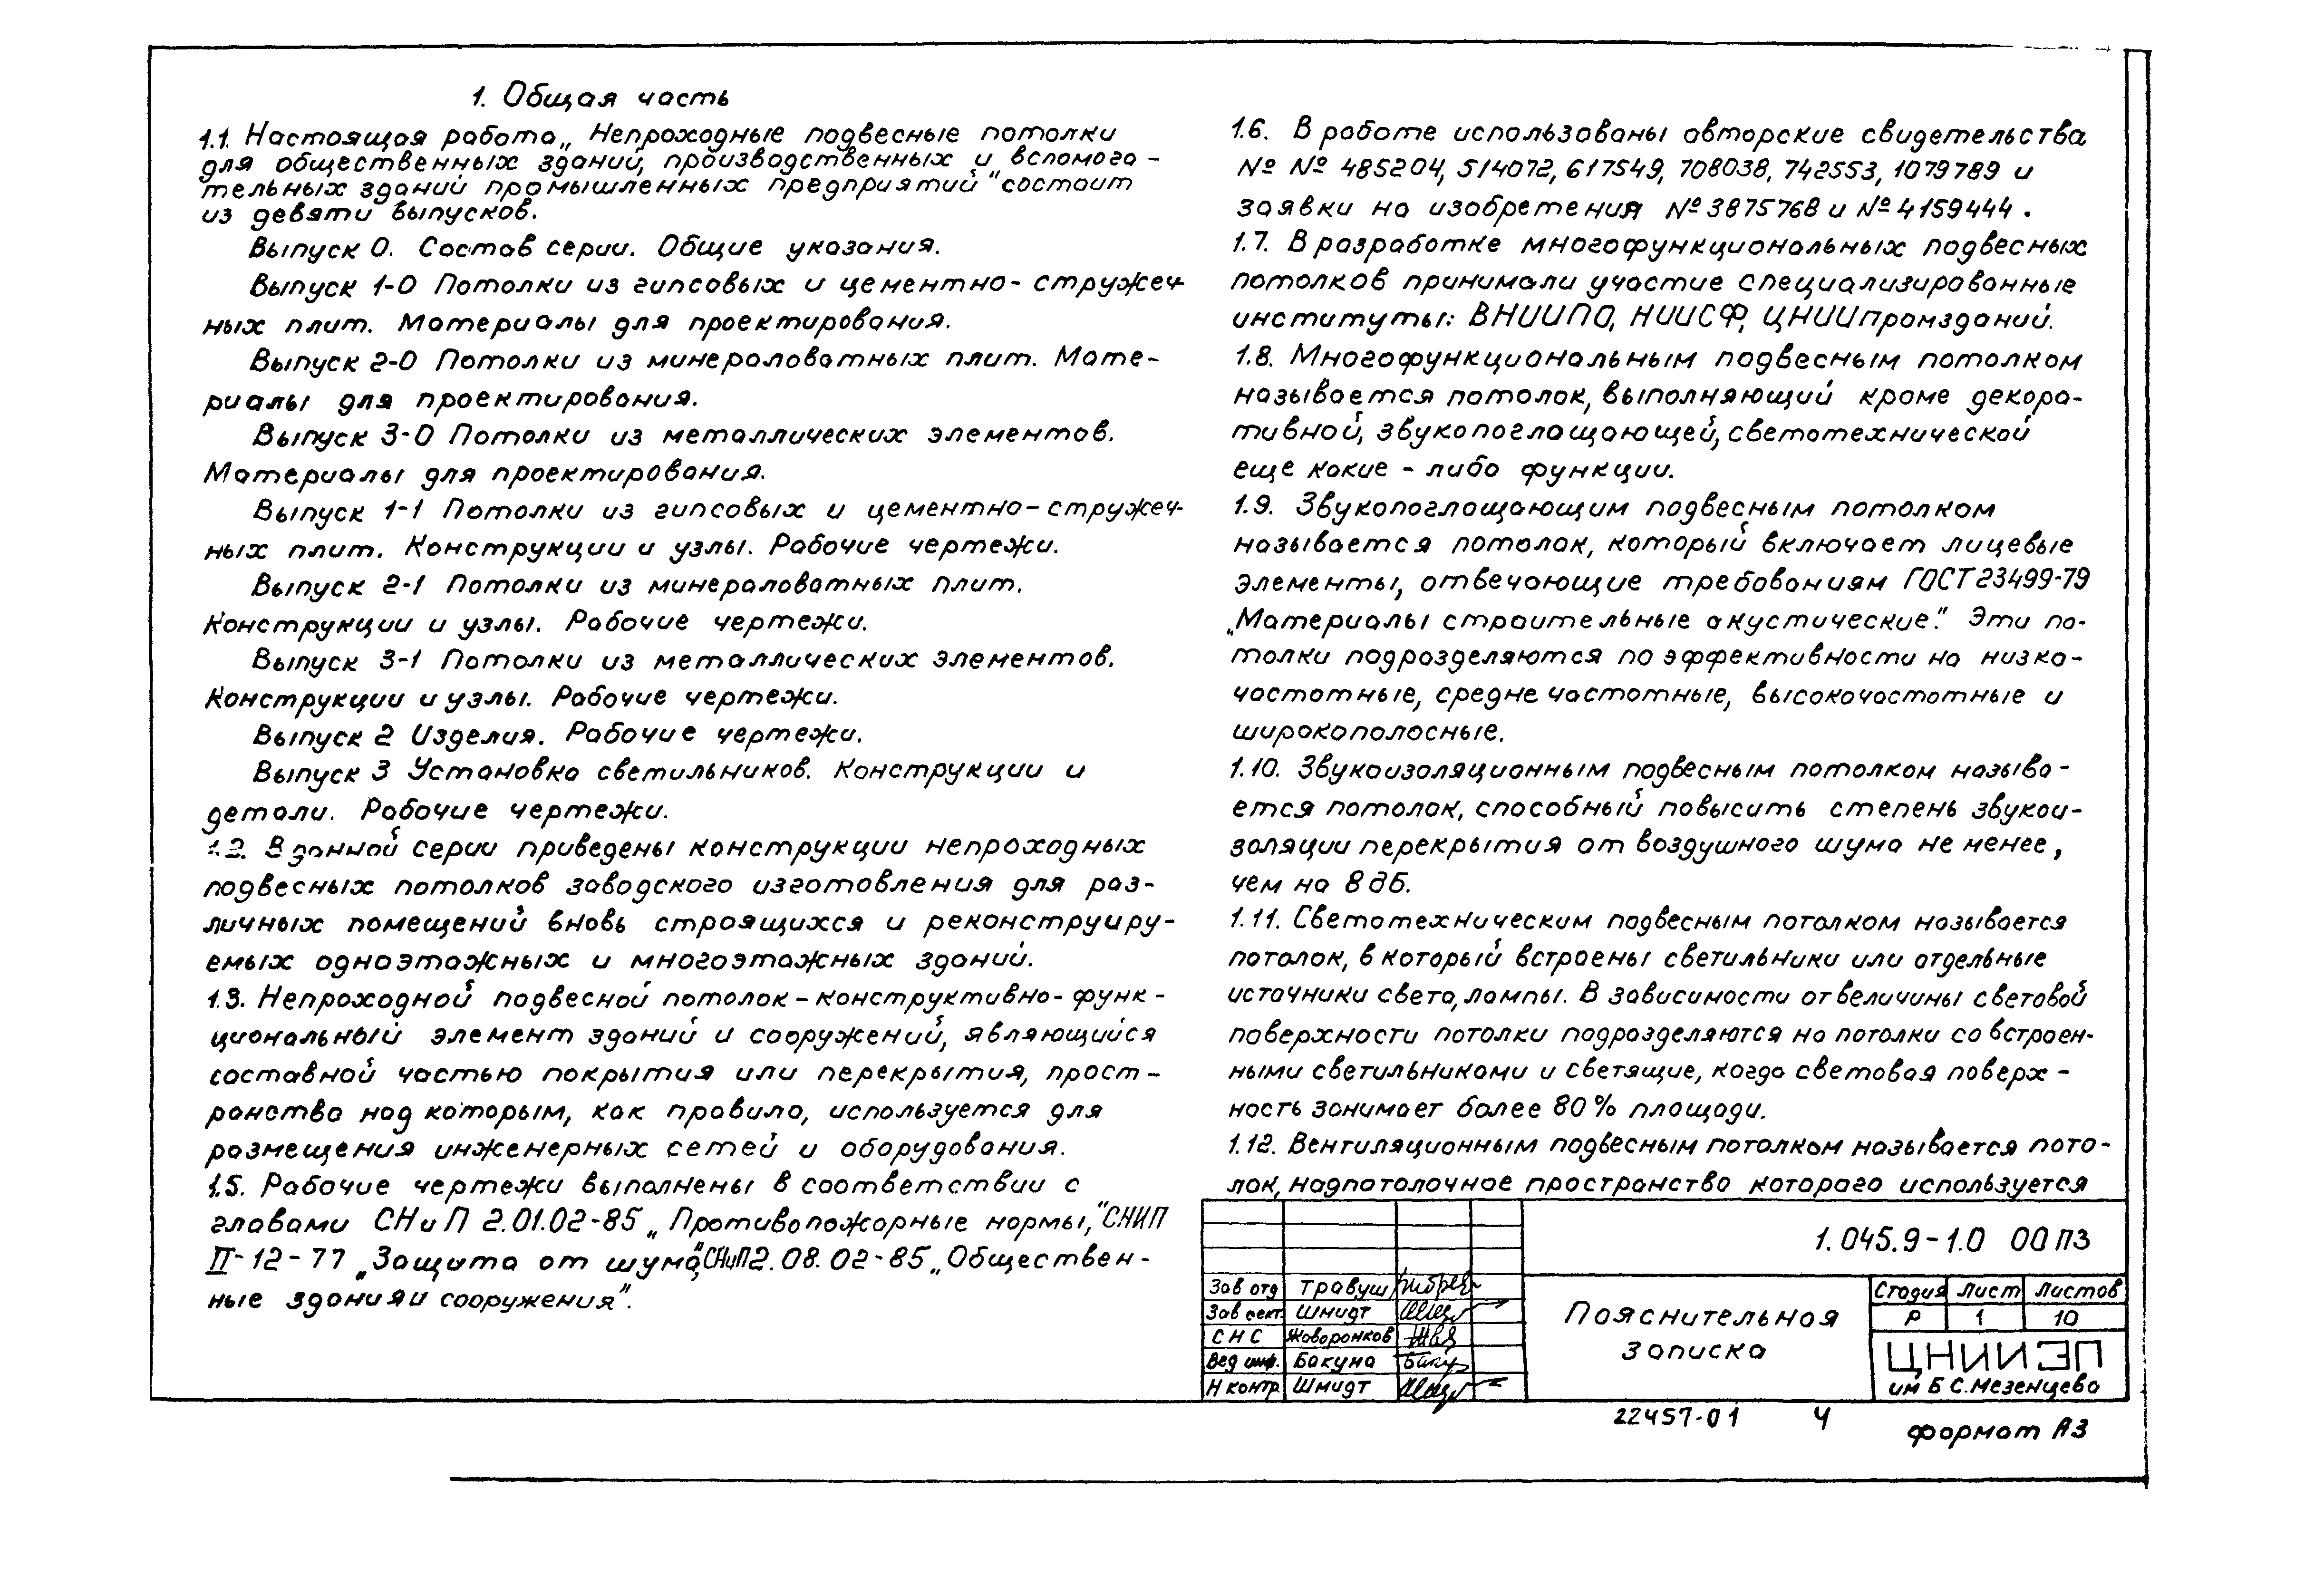 1. Общая часть
1.1. Настоящая работа „Непроходные подвесные потолки
для общественных зданий, производственных и вспомога-
тельных зданий промышленных предприятий" состоит
из девяти выпусков.
Выпуск 0. Состав серии. Общие указания.
Выпуск 1-0 Потолки из гипсовых и цементно-стружеч-
ных плит. Материалы для проектирования.
Выпуск 2-0 Потолки из минераловатных плит. Мате-
риалы для проектирования.
Выпуск 3-0 Потолки из металлических элементов.
Материалы для проектирования.
Выпуск 1-1 Потолки из гипсовых и цементно-стружеч-
ных плит. Конструкции и узлы. Рабочие чертежи.
Выпуск 2-1 Потолки из минераловатных плит.
Конструкции и узлы. Рабочие чертежи.
Выпуск 3-1 Потолки из металлических элементов.
Конструкции и узлы. Рабочие чертежи.
Выпуск 2 Изделия. Рабочие чертежи.
Выпуск 3 Установка светильников. Конструкции и
детали. Рабочие чертежи.
1.2. В данной серии приведены конструкции непроходных
подвесных потолков заводского изготовления для раз-
личных помещений вновь строящихся и реконструиру-
емых одноэтажных и многоэтажных зданий.
1.3. Непроходной подвесной потолок - конструктивно-функ-
циональный элемент зданий и сооружений, являющийся
составной частью покрытия или перекрытия, прост-
ранство над которым, как правило, используется для
размещения инженерных сетей и оборудования.
1.5. Рабочие чертежи выполнены в соответствии с
главами СНиП 2.01.02-85 „Противопожарные нормы," СНИП
II-12-77 „Защита от шума", СНиП 2.08.02-85 „Обществен-
ные здания и сооружения".
1.6. В работе использованы авторские свидетельства
№ № 485204, 514072, 617549, 708038, 742553, 1079789 и
заявки на изобретения № 3875768 и № 4159444.
1.7. В разработке многофункциональных подвесных
потолков принимали участие специализированные
институты: ВНИИПО, НИИСФ, ЦНИИпромзданий.
1.8. Многофункциональным подвесным потолком
называется потолок, выполняющий кроме декора-
тивной, звукопоглощающей, светотехнической
еще какие - либо функции.
1.9. Звукопоглощающим подвесным потолком
называется потолок, который включает лицевые
элементы, отвечающие требованиям ГОСТ 23499-79
„Материалы строительные акустические". Эти по-
толки подразделяются по эффективности на низко-
частотные, средне частотные, высокочастотные и
широкополосные.
1.10. Звукоизоляционным подвесным потолком называ-
ется потолок, способный повысить степень звукои-
золяции перекрытия от воздушного шума не менее,
чем на 8 дБ.
1.11. Светотехническим подвесным потолком называется
потолок, в который встроены светильники или отдельные
источники света, лампы. В зависимости от величины световой
поверхности потолки подразделяются на потолки со встроен-
ными светильниками и светящие, когда световая поверх-
ность занимает более 80% площади.
1.12. Вентиляционным подвесным потолком называется пото-
лок, надпотолочное пространство которого используется
1.045.9-1.0 00 ПЗ
Зав отд Травуш
Зав сект. Шмидт
СНС Жаворонков
Вед инж. Бакуна
Н контр. Шмидт
Пояснительная
записка
Стадия Лист Листов
Р 1 10
ЦНИИЭП
им Б С. Мезенцева
22457-01 4
формат А3